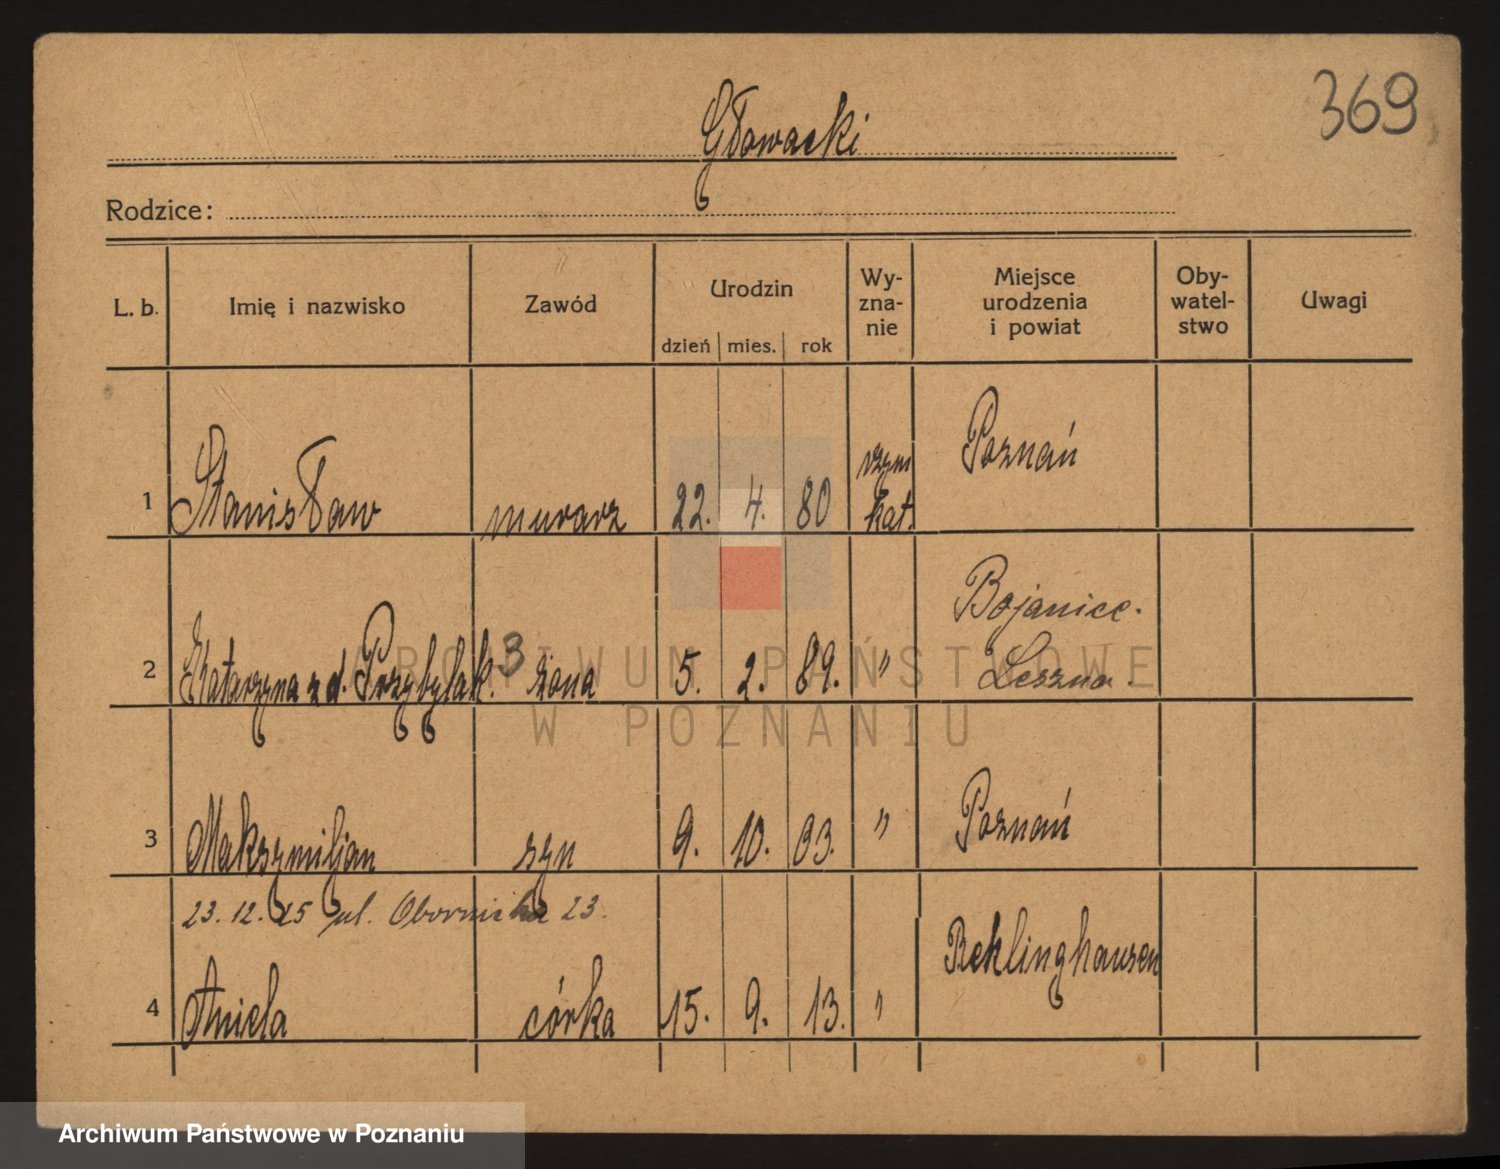 369
Głowacki
Rodzice:
L. b. Imię i nazwisko Zawód Urodzin dzień mies. rok Wy-zna-nie Miejsce urodzenia i powiat Oby-watel-stwo Uwagi
1 Stanisław murarz 22. 4. 80 rzym kat. Poznań
2 Katarzyna z d. Przybylak. 3 żona 5. 2. 89. " Bojanice. Leszna.
3 Maksymiljan syn 9. 10. 03. " Poznań
23. 12. 25 ul. Obornicka 23.
4 Aniela córka 15. 9. 13. " Reklinghausen
ARCHIWUM PAŃSTWOWE
W POZNANIU
Archiwum Państwowe w Poznaniu